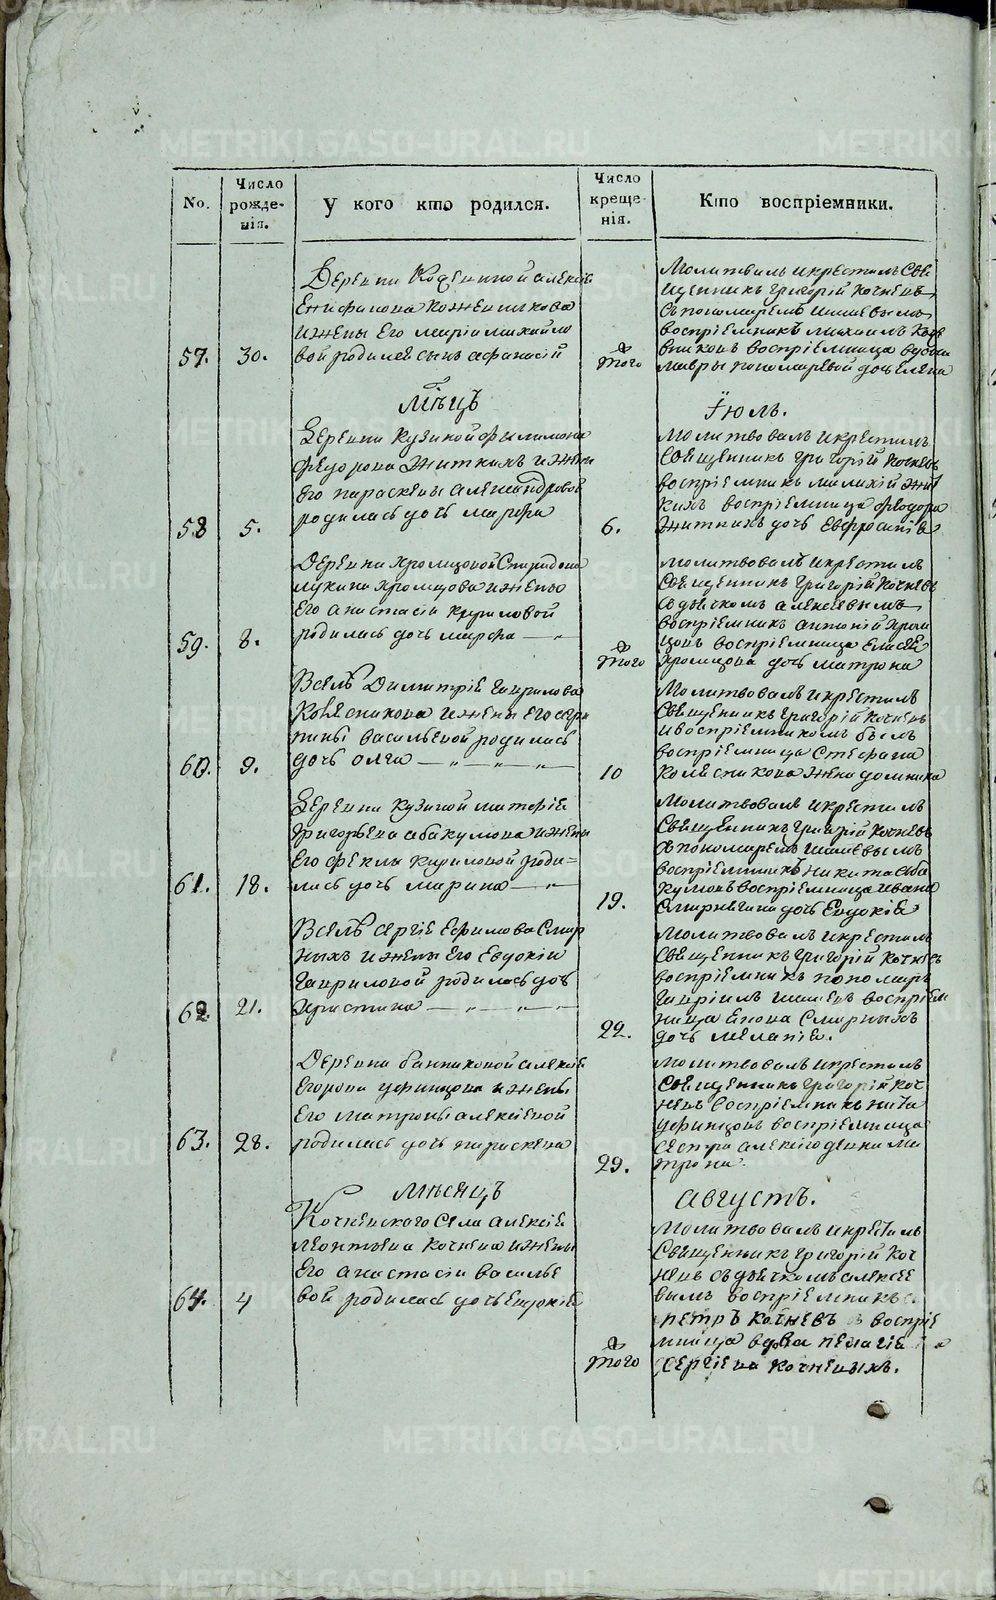 METRIKI.GASO-URAL.RU
No.
Число рожде-нія.
у кого кто родился.
Число креще-нія.
Кто воспріемники.
57. 30.
Деревни Кодинной алексѣя
Епифанова Кожевникова
и жены Его маріи михайло
вой родился сынъ афанасій
того
Молитвилъ и крестилъ Свя
щенникъ григорій Кочневъ
съ пономаремъ
воспріемникъ михаилъ Коже
вниковъ воспріемница вдовы
мавры пономаревой дочь елена
мѣцъ Їюль.
58 5.
Деревни Кузиной филимона
федорова Житкихъ и жены
Его параскевы александровой
родилась дочь марѳа
6.
молитвовалъ и крестилъ
Священникъ григорій Кочневъ
воспріемникъ Жит
кихъ воспріемница феодора
Житкихъ дочь Евфросинія
59. 8.
Деревни Хромцовой Спиридона
лукина Хромцова и жены
Его анастасіи Кириловой
родилась дочь марѳа
того
молитвовалъ и крестилъ
Священникъ григорій Кочневъ
съ дьячкомъ алексеевымъ
воспріемникъ антоній Хром
цовъ воспріемница Елисея
Хромцова дочь матрона
60. 9.
Въ селѣ Димитрія гаврилова
Колесникова и жены Его агри
пины васильевой родилась
дочь олга
10
Молитвовалъ и крестилъ
Священникъ григорій Кочневъ
и воспріемникомъ былъ
воспріемница Стефана
Колесникова жена домника
61. 18.
Деревни Кузиной матфѣя
григорьева абакумова и жены
Его феклы Кириловой роди=
лась дочь марина
19.
Молитвовалъ и крестилъ
Священникъ григорій Кочневъ
съ пономаремъ
воспріемникъ никита аба
кумовъ воспріемница ивана
Смирнягина дочь Евдокія
62. 21.
Въ селѣ сергія Ефимова Смир
ныхъ и жены Его Евдокіи
гавриловой родилась дочь
христина
22.
Молитвовалъ и крестилъ
Священникъ григорій Кочневъ
воспріемникъ пономарь
гавріилъ воспріем
ница Смирныхъ
дочь меланія.
63. 28.
Деревни банниковой алексѣя
Егорова уфинцова и жены
Его матроны алексіевой
родилась дочь параскева
29.
Молитвовалъ и крестилъ
Священникъ григорій Коч
невъ воспріемникъ
уфинцовъ воспріемница
сестра алексія девка ма
трона.
Мѣсяцъ августъ.
64. 4
Кочневского Села алексія
леонтьева Кочнева и жены
Его анастасіи василье
вой родилась дочь Евдокія
того
Молитвовалъ и крестилъ
Священникъ григорій Коч
невъ съ дьячкомъ алексее
вымъ воспріемникъ
петръ Кочневъ воспріе
мница вдова пелагія
Сергіева Кочневыхъ.